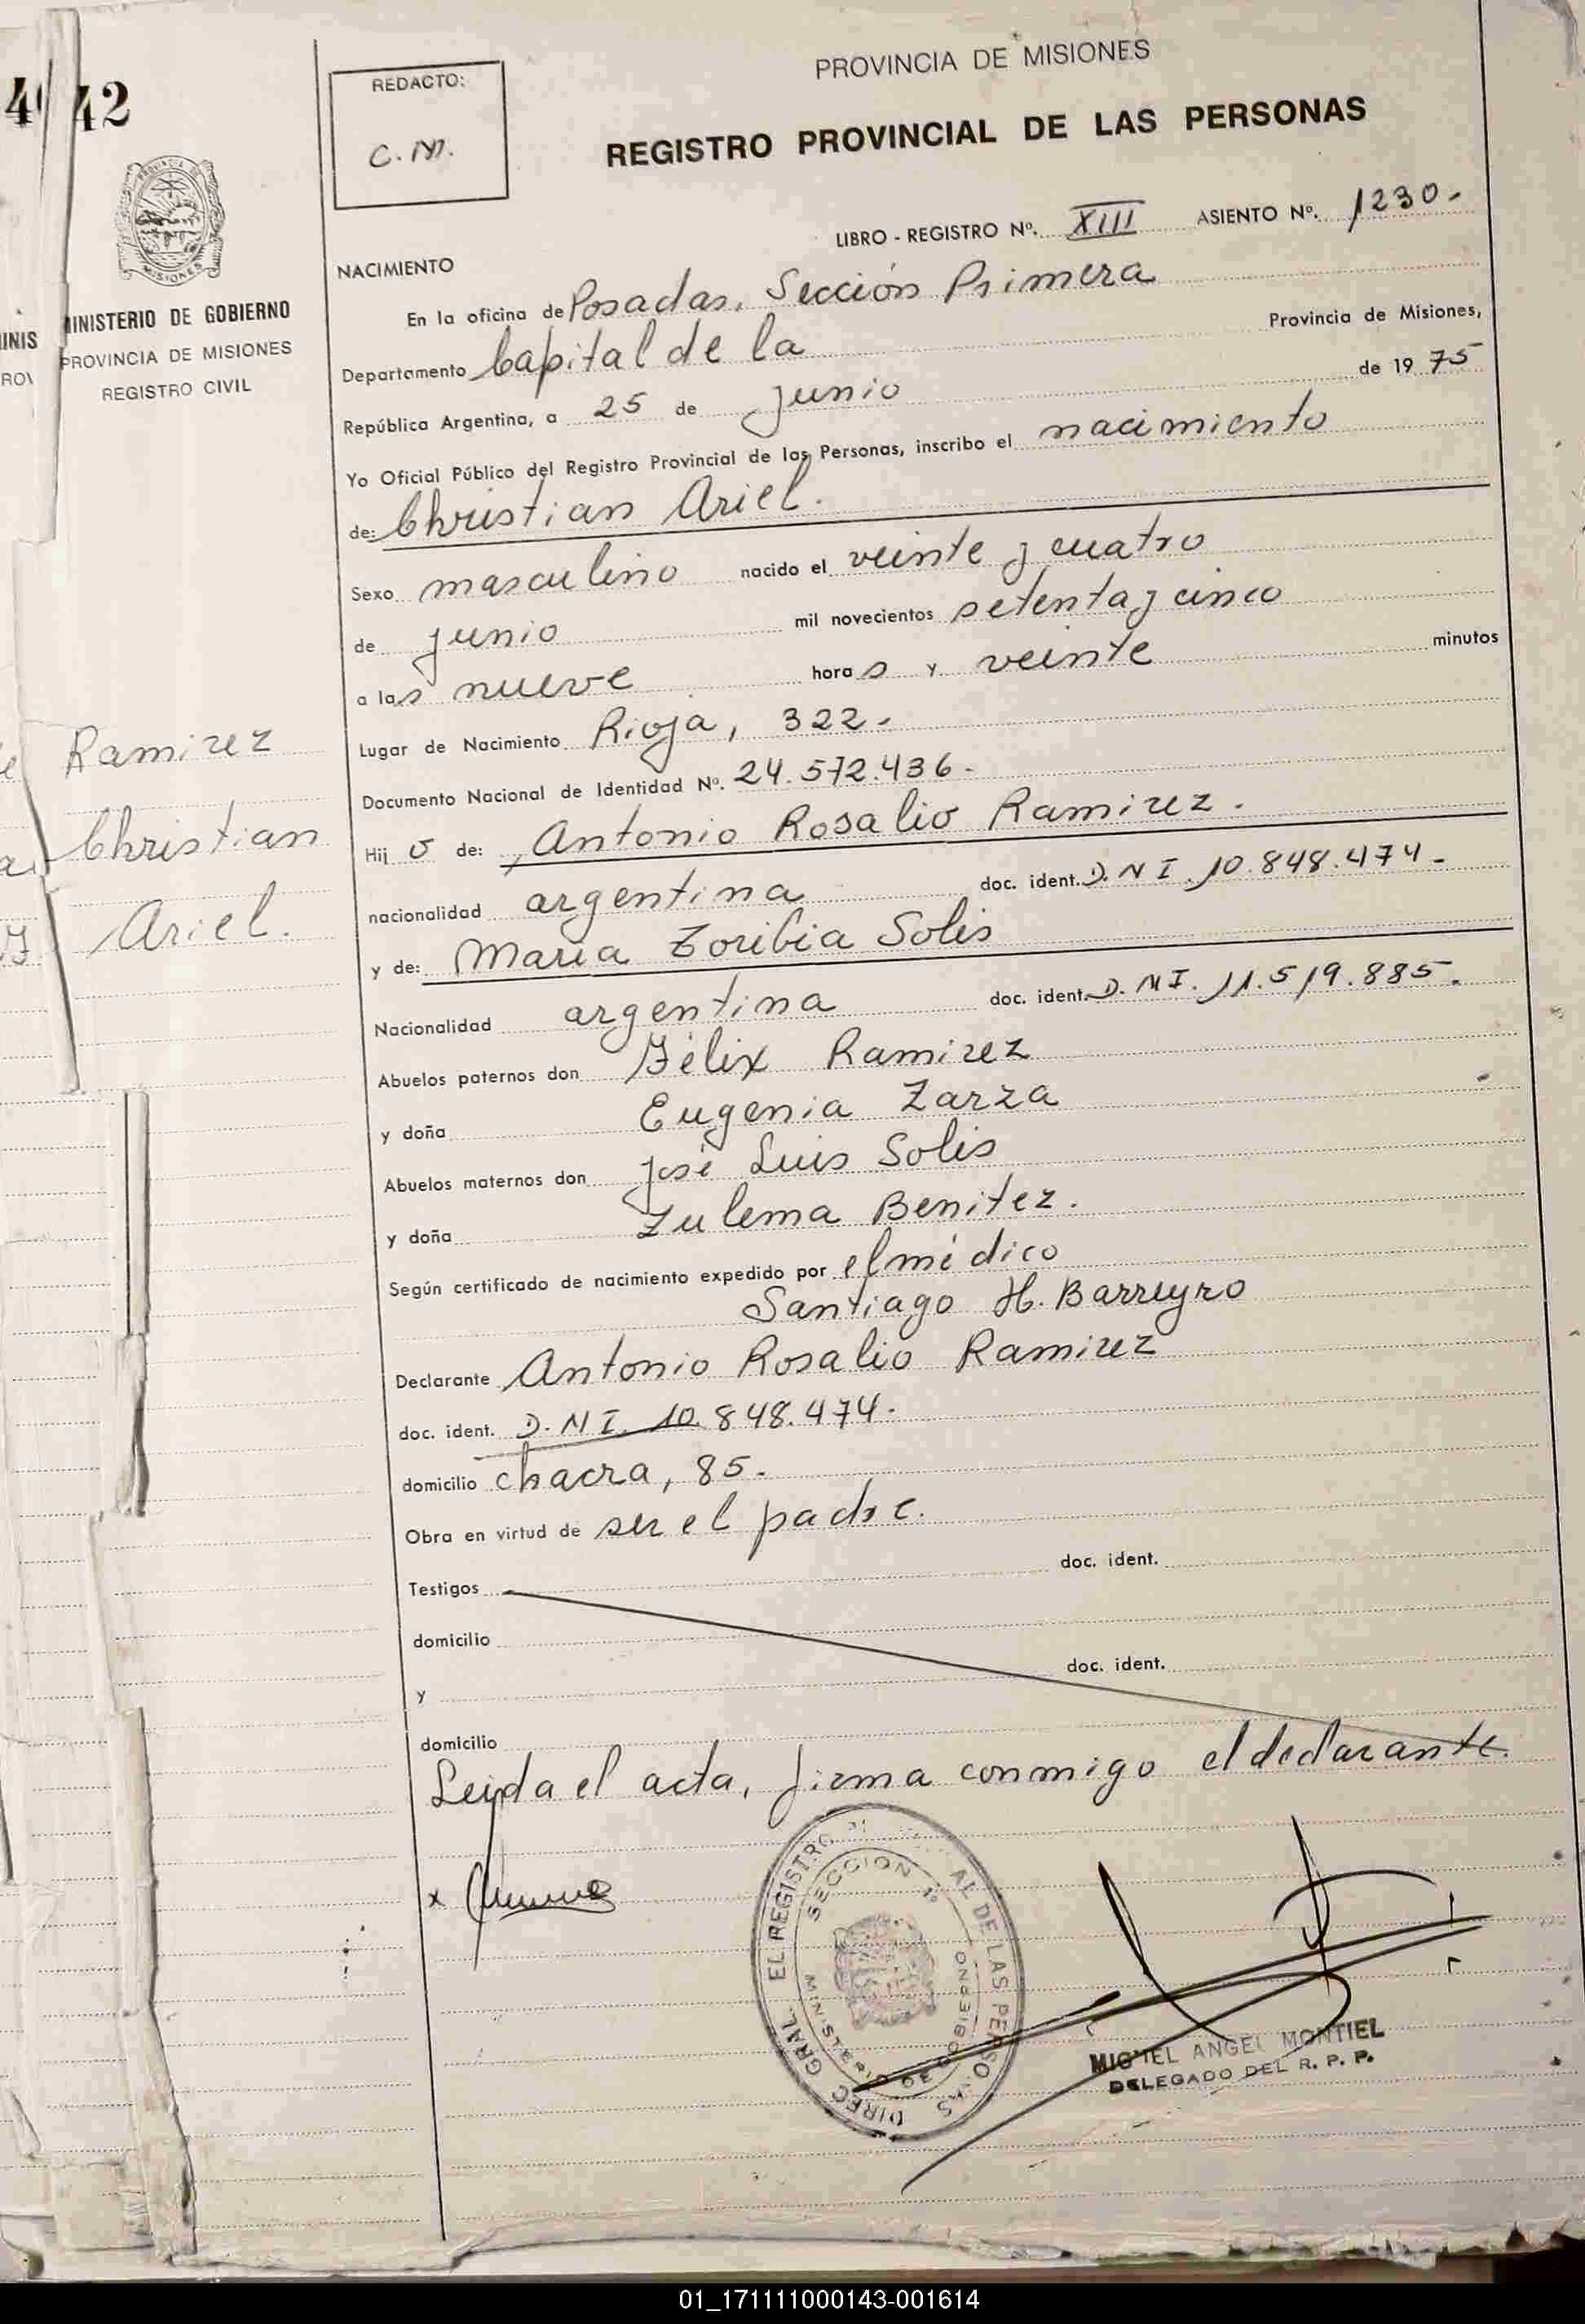 42
REDACTO:
C. M.
MINISTERIO DE GOBIERNO
PROVINCIA DE MISIONES
REGISTRO CIVIL
Ramirez
Christian
Ariel.
PROVINCIA DE MISIONES
REGISTRO PROVINCIAL DE LAS PERSONAS
LIBRO - REGISTRO Nº. XIII ASIENTO Nº. 1230.-
NACIMIENTO
En la oficina de Posadas, Sección Primera
Departamento Capital de la Provincia de Misiones,
República Argentina, a 25 de junio de 1975
Yo Oficial Público del Registro Provincial de las Personas, inscribo el nacimiento
de: Christian Ariel.
Sexo masculino nacido el veinte y cuatro
de junio mil novecientos setenta y cinco
a las nueve horas y veinte minutos
Lugar de Nacimiento Rioja, 322.-
Documento Nacional de Identidad Nº. 24.572.436-
Hijo de: Antonio Rosalio Ramirez.
nacionalidad argentina doc. ident. D.N I. 10.848.474-
y de: Maria Toribia Solis
Nacionalidad argentina doc. ident. D. N I. 11.519.885.
Abuelos paternos don Félix Ramirez
y doña Eugenia Zarza
Abuelos maternos don José Luis Solis
y doña Zulema Benitez.
Según certificado de nacimiento expedido por el médico
Santiago H. Barreyro
Declarante Antonio Rosalio Ramirez
doc. ident. D. N I. 10.848.474.
domicilio chacra, 85.
Obra en virtud de ser el padre.
Testigos doc. ident.
domicilio
y doc. ident.
domicilio
Leida el acta, firma conmigo el declarante.
x
SECCION 1ª
MIGUEL ANGEL MONTIEL
DELEGADO DEL R. P. P.
01_171111000143-001614